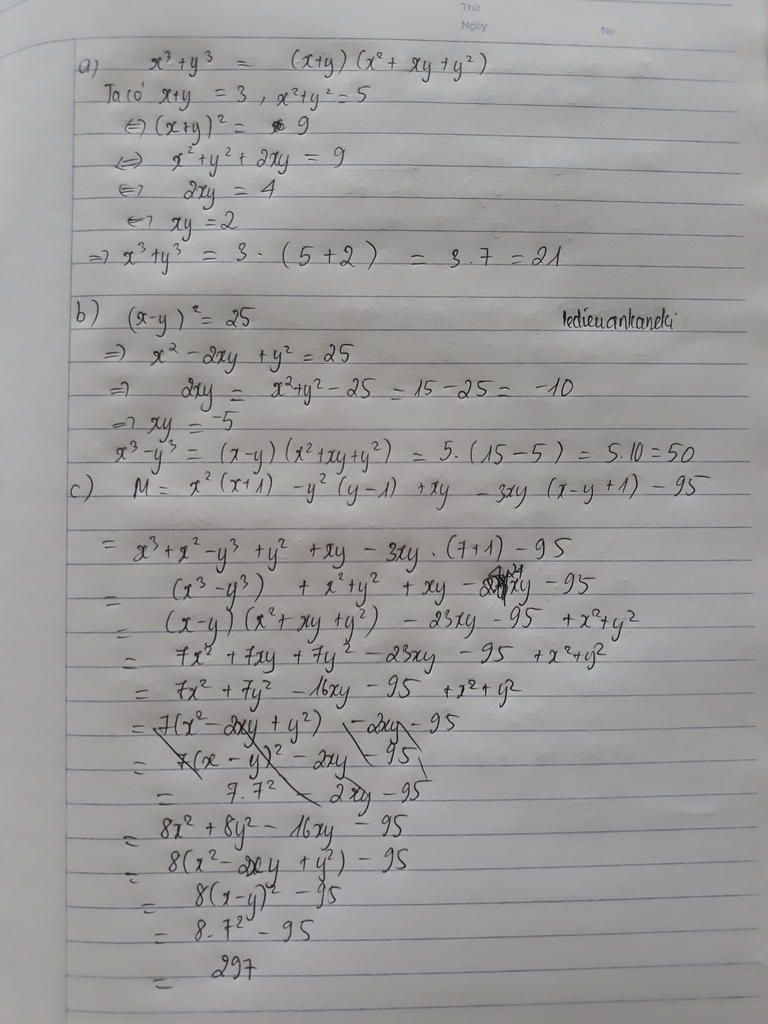 Thứ
Ngày
No
a) x³+y³ = (x+y) (x²+ xy+y²)
Ta có x+y = 3 , x²+y²=5
⇔ (x+y)² = 9
⇔ x²+y² + 2xy = 9
⇔ 2xy = 4
⇔ xy = 2
⇒ x³+y³ = 3 . (5+2) = 3.7 = 21
b) (x-y)² = 25
ledieuankaneki
⇒ x² - 2xy + y² = 25
⇒ 2xy = x²+y² - 25 = 15 - 25 = -10
⇒ xy = -5
x³-y³ = (x-y) (x²+xy+y²) = 5. (15-5) = 5.10 = 50
c) M = x² (x+1) - y² (y-1) + xy - 3xy (x-y+1) - 95
= x³+x² - y³ + y² + xy - 3xy . (7+1) - 95
= (x³-y³) + x²+y² + xy - 24xy - 95
= (x-y) (x²+ xy + y²) - 23xy - 95 + x²+y²
= 7x² + 7xy + 7y² - 23xy - 95 + x²+y²
= 7x² + 7y² - 16xy - 95 + x²+y²
= 7(x² - 2xy + y²) - 2xy - 95
= 7(x-y)² - 2xy - 95
= 7.7² - 2xy - 95
= 8x² + 8y² - 16xy - 95
= 8(x² - 2xy + y²) - 95
= 8(x-y)² - 95
= 8.7² - 95
= 297